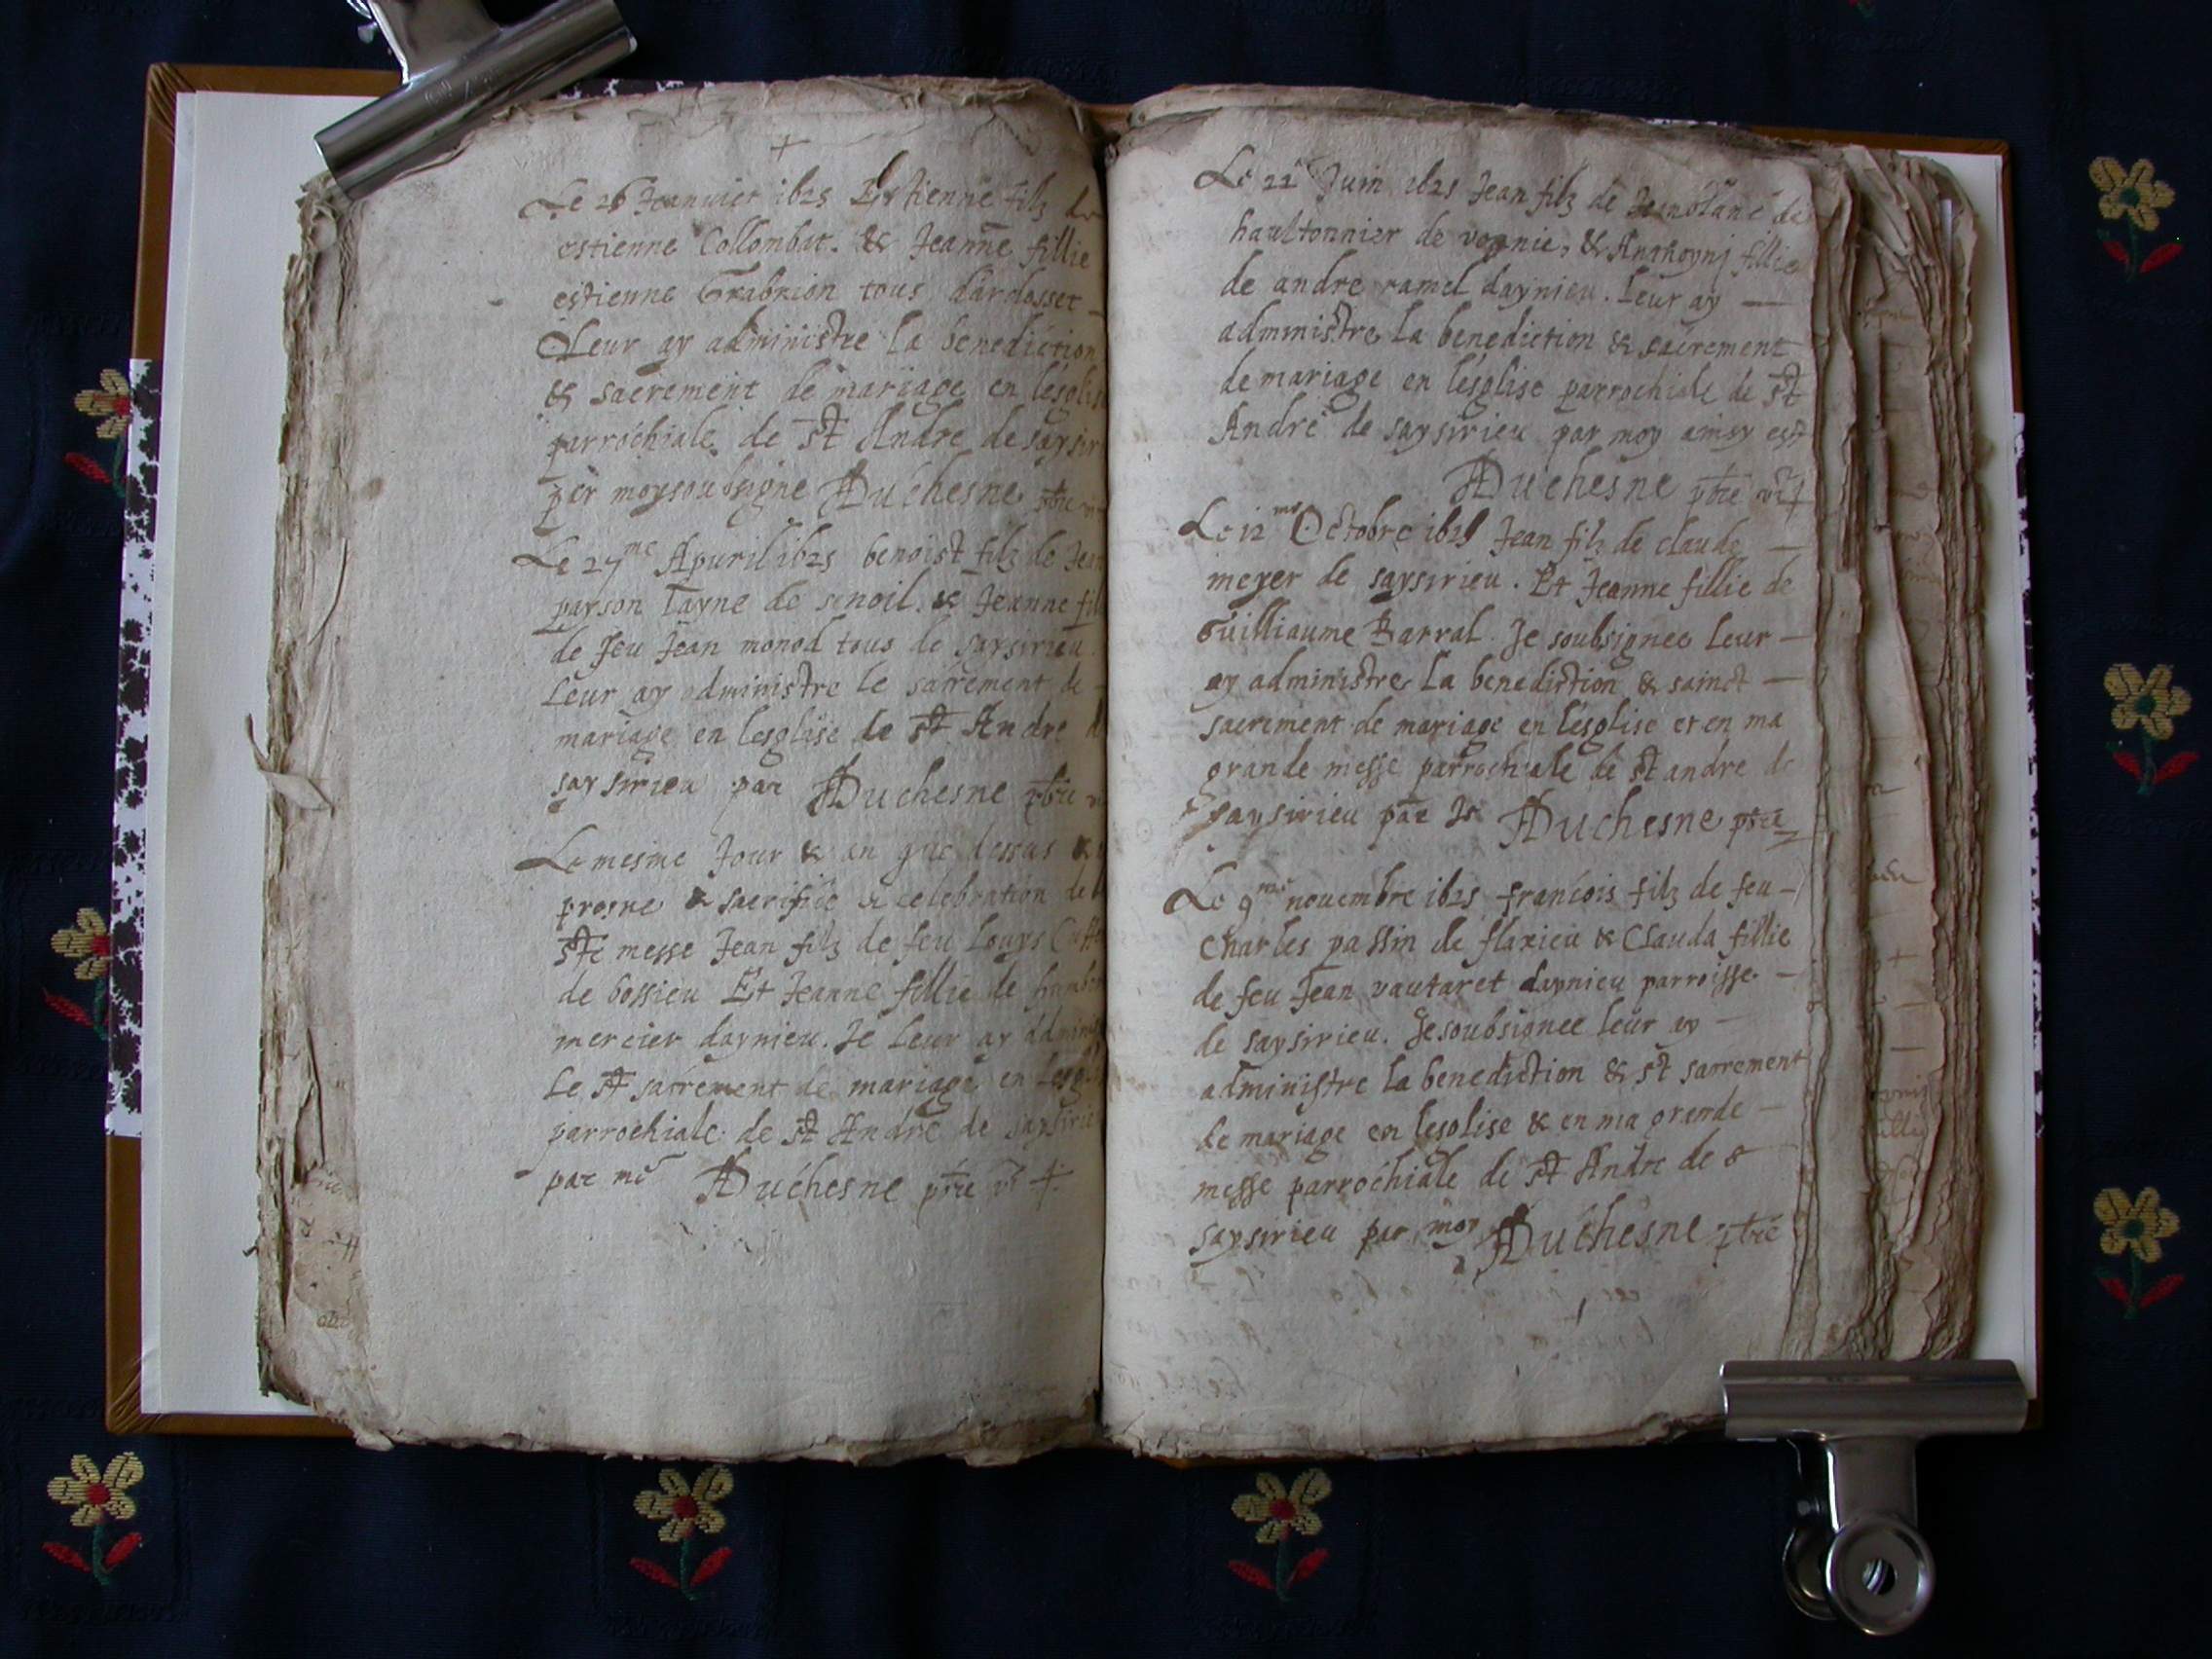 +
Le 26 Jeanvier 1625 Estienne filz de
estienne Collombat. & Jeanne fillie
estienne Grabrion tous dardosset
Leur ay administre la benediction
& sacrement de mariage en lesglis
parrochiale de st Andre de saysir
par moy soubsigne Duchesne ptre
Le 27me Apuril 1625 benoist filz de Jean
payson Tayne de senoil. & Jeanne fil
de feu Jean monod tous de saysirieu.
Leur ay administre le sacrement de
mariage en lesglise de st Andre d
saysirieu par Duchesne ptre
Le mesme Jour & an que dessus &
prosne & sacrifice & celebration de
ste messe Jean filz de feu Louys
de bossieu Et Jeanne fillie de
mercier daynieu. Je Leur ay admin
Le st sacrement de mariage en Lesg
parrochiale de st Andre de saysirie
par me Duchesne ptre vi
Le 22 Juin 1625 Jean filz de de
haultonnier de vognie, & Anthoynj fillie
de andre ramel daynieu. Leur ay
administre La benediction & sacrement
de mariage en lesglise parrochiale de st
Andre de saysirieu par moy ainsy est
Duchesne ptre
Le 12me Octobre 1625 Jean filz de claude
meyer de saysirieu. Et Jeanne fillie de
Guilliaume Barral. Je soubsignee Leur
ay administre La benediction & sainct
sacrement de mariage en lesglise et en ma
grande messe parrochiale de st andre de
saysirieu par Je Duchesne ptre
Le 9me nouembre 1625 francois filz de feu
Charles passin de flaxieu & Clauda fillie
de feu Jean vautaret daynieu parroisse
de saysirieu. Je soubsignee leur ay
administre la benediction & st sacrement
de mariage en lesglise & en ma grande
messe parrochiale de st Andre de
saysirieu par moy Duchesne ptre